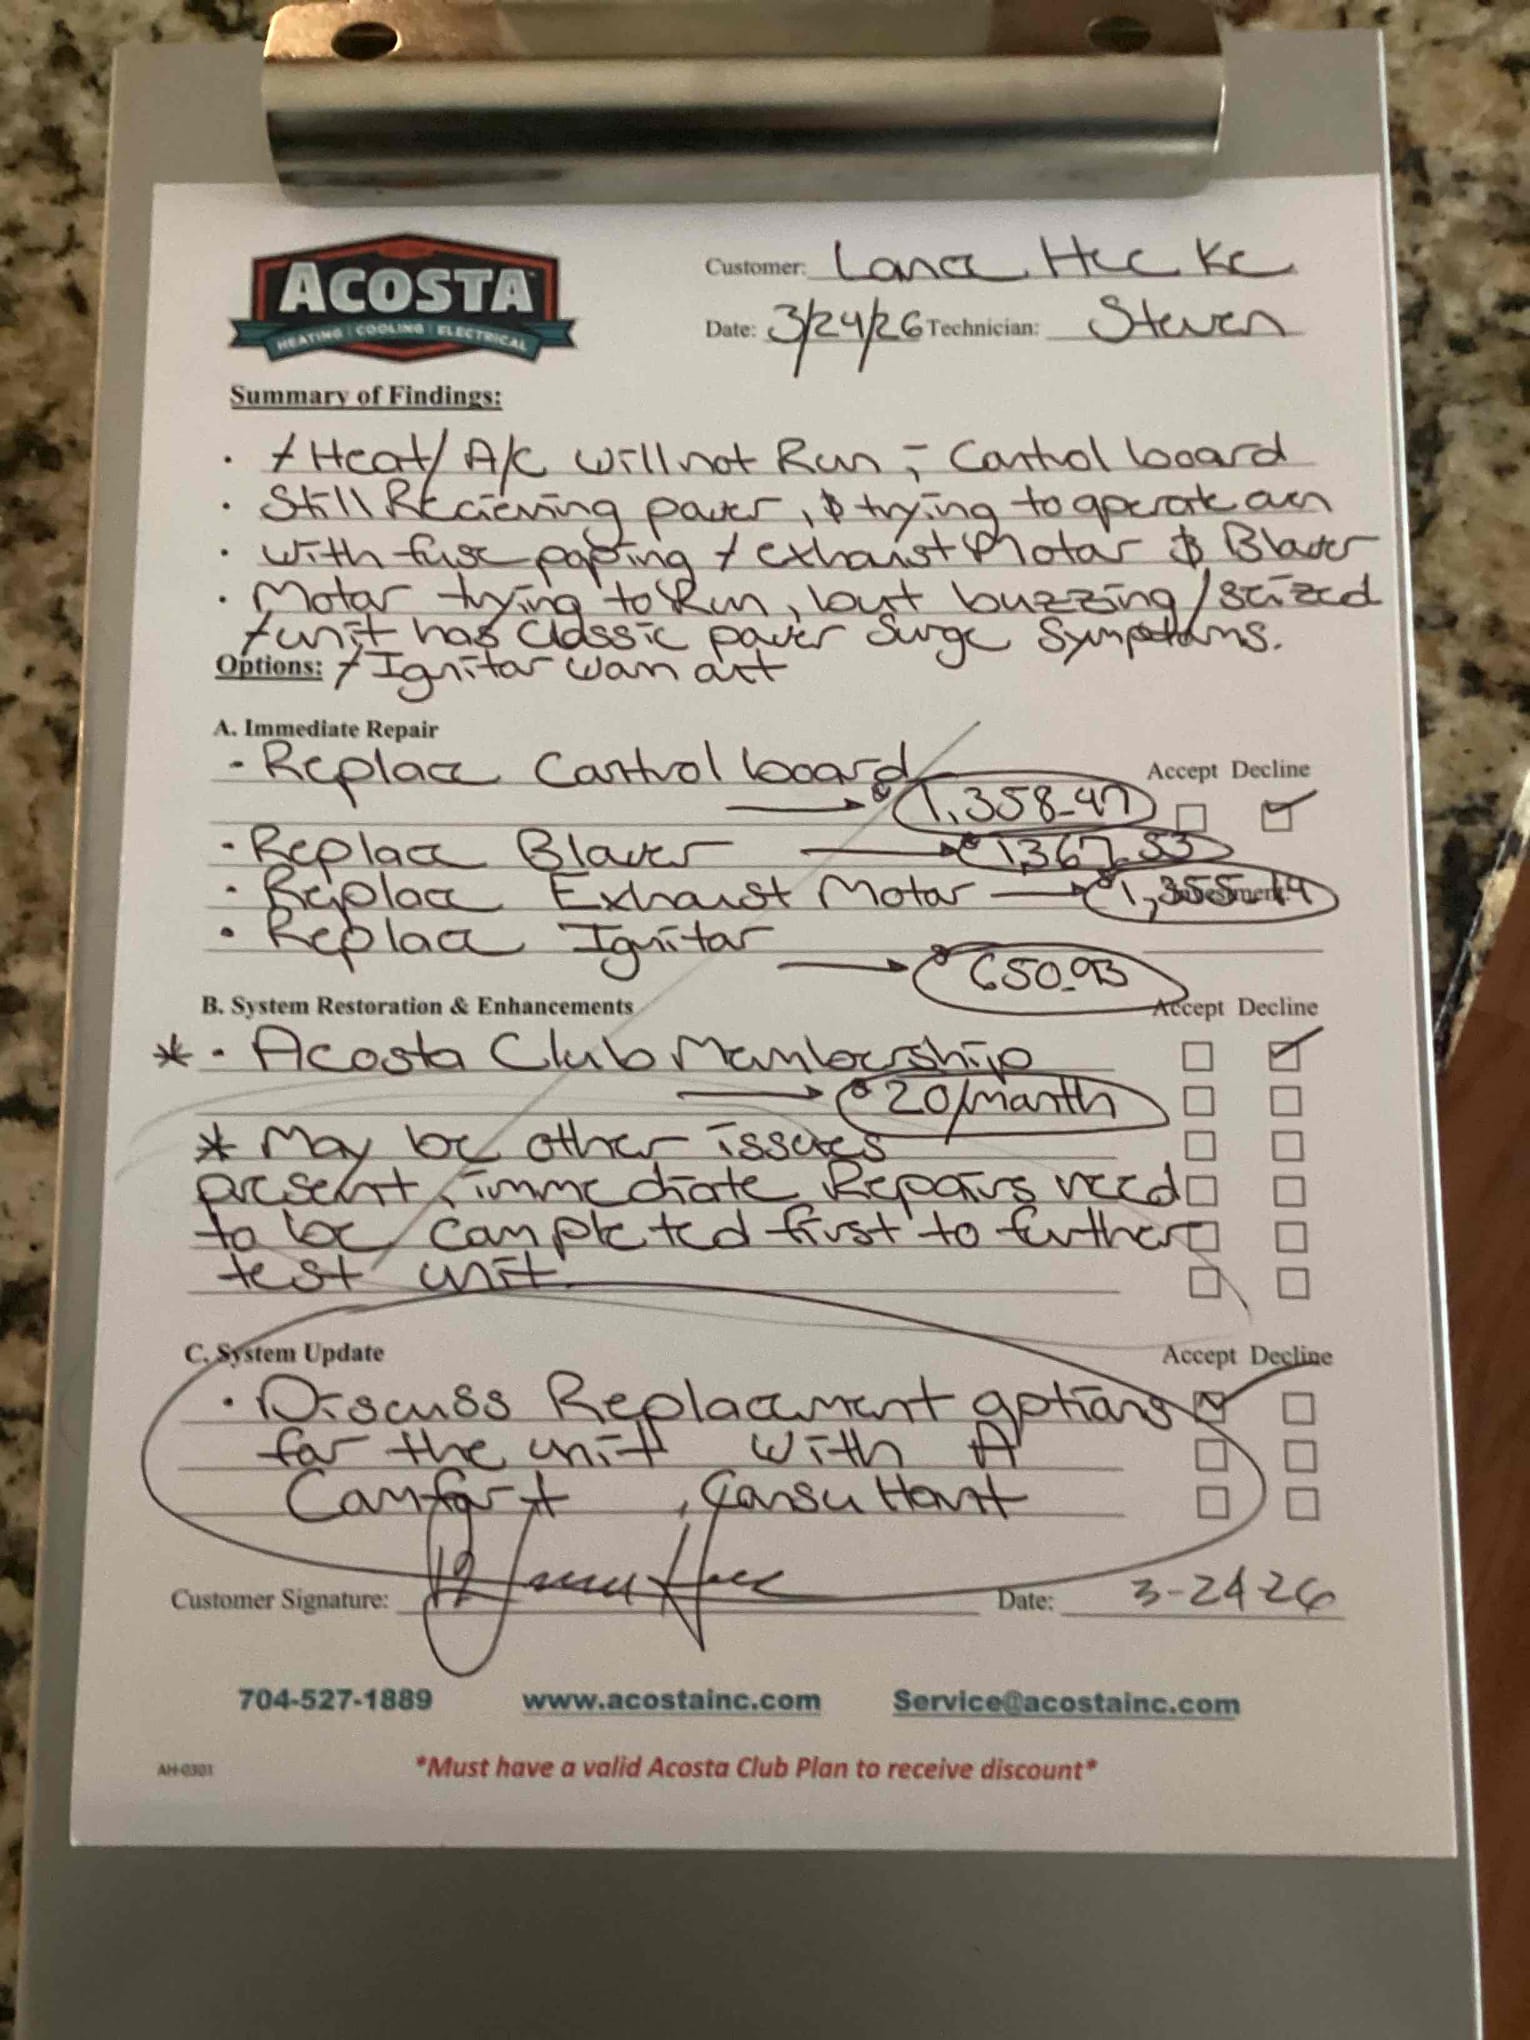 ACOSTA
HEATING | COOLING | ELECTRICAL
Customer: Lance Hecke
Date: 3/24/26 Technician: Steven
Summary of Findings:
· / Heat/A/C will not Run, - Control board
· Still Recieving power, & trying to operate even
· with fuse popping / exhaust Motor & Blower
· Motor trying to Run, but buzzing/seized
/ unit has classic power surge symptoms.
Options: / Ignitor worn out
A. Immediate Repair
- Replace Control board
Accept Decline
→ $1,358.47
· Replace Blower → $1367.53
· Replace Exhaust Motor → $1,355.14
· Replace Ignitor
→ $650.93
B. System Restoration & Enhancements
Accept Decline
* · Acosta Club Membership
→ $20/month
* May be other issues
present, immediate Repairs need
to be completed first to further
test unit
C. System Update
Accept Decline
· Discuss Replacement options
for the unit with A
Comfort Consultant
Customer Signature:
Date: 3-24-26
704-527-1889 www.acostainc.com Service@acostainc.com
AH-0301
*Must have a valid Acosta Club Plan to receive discount*